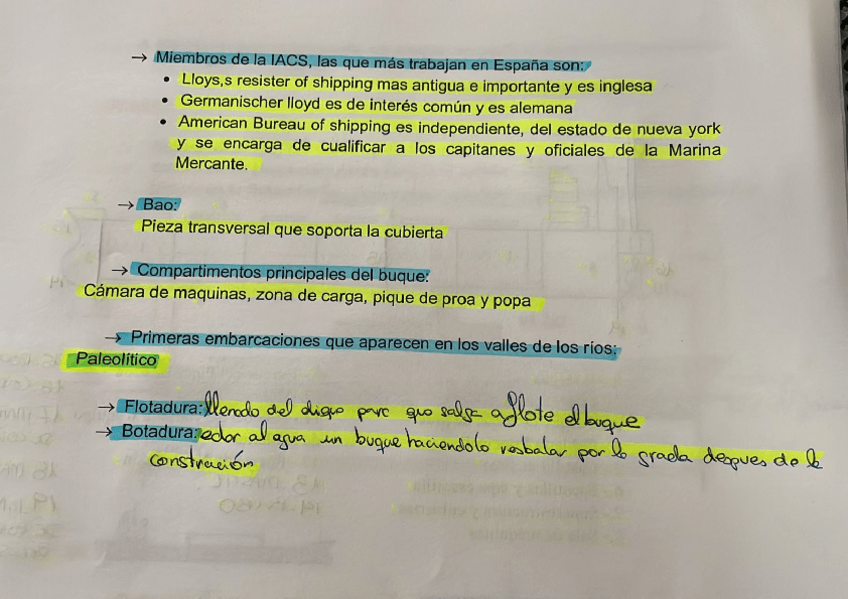 → Miembros de la IACS, las que más trabajan en España son:
• Lloys,s resister of shipping mas antigua e importante y es inglesa
• Germanischer lloyd es de interés común y es alemana
• American Bureau of shipping es independiente, del estado de nueva york
y se encarga de cualificar a los capitanes y oficiales de la Marina
Mercante.
→ Bao:
Pieza transversal que soporta la cubierta
→ Compartimentos principales del buque:
Cámara de maquinas, zona de carga, pique de proa y popa
→ Primeras embarcaciones que aparecen en los valles de los ríos:
Paleolítico
→ Flotadura: llenado del dique para que salga a flote el buque
→ Botadura: al agua un buque haciendolo resbalar por la grada despues de la
construción